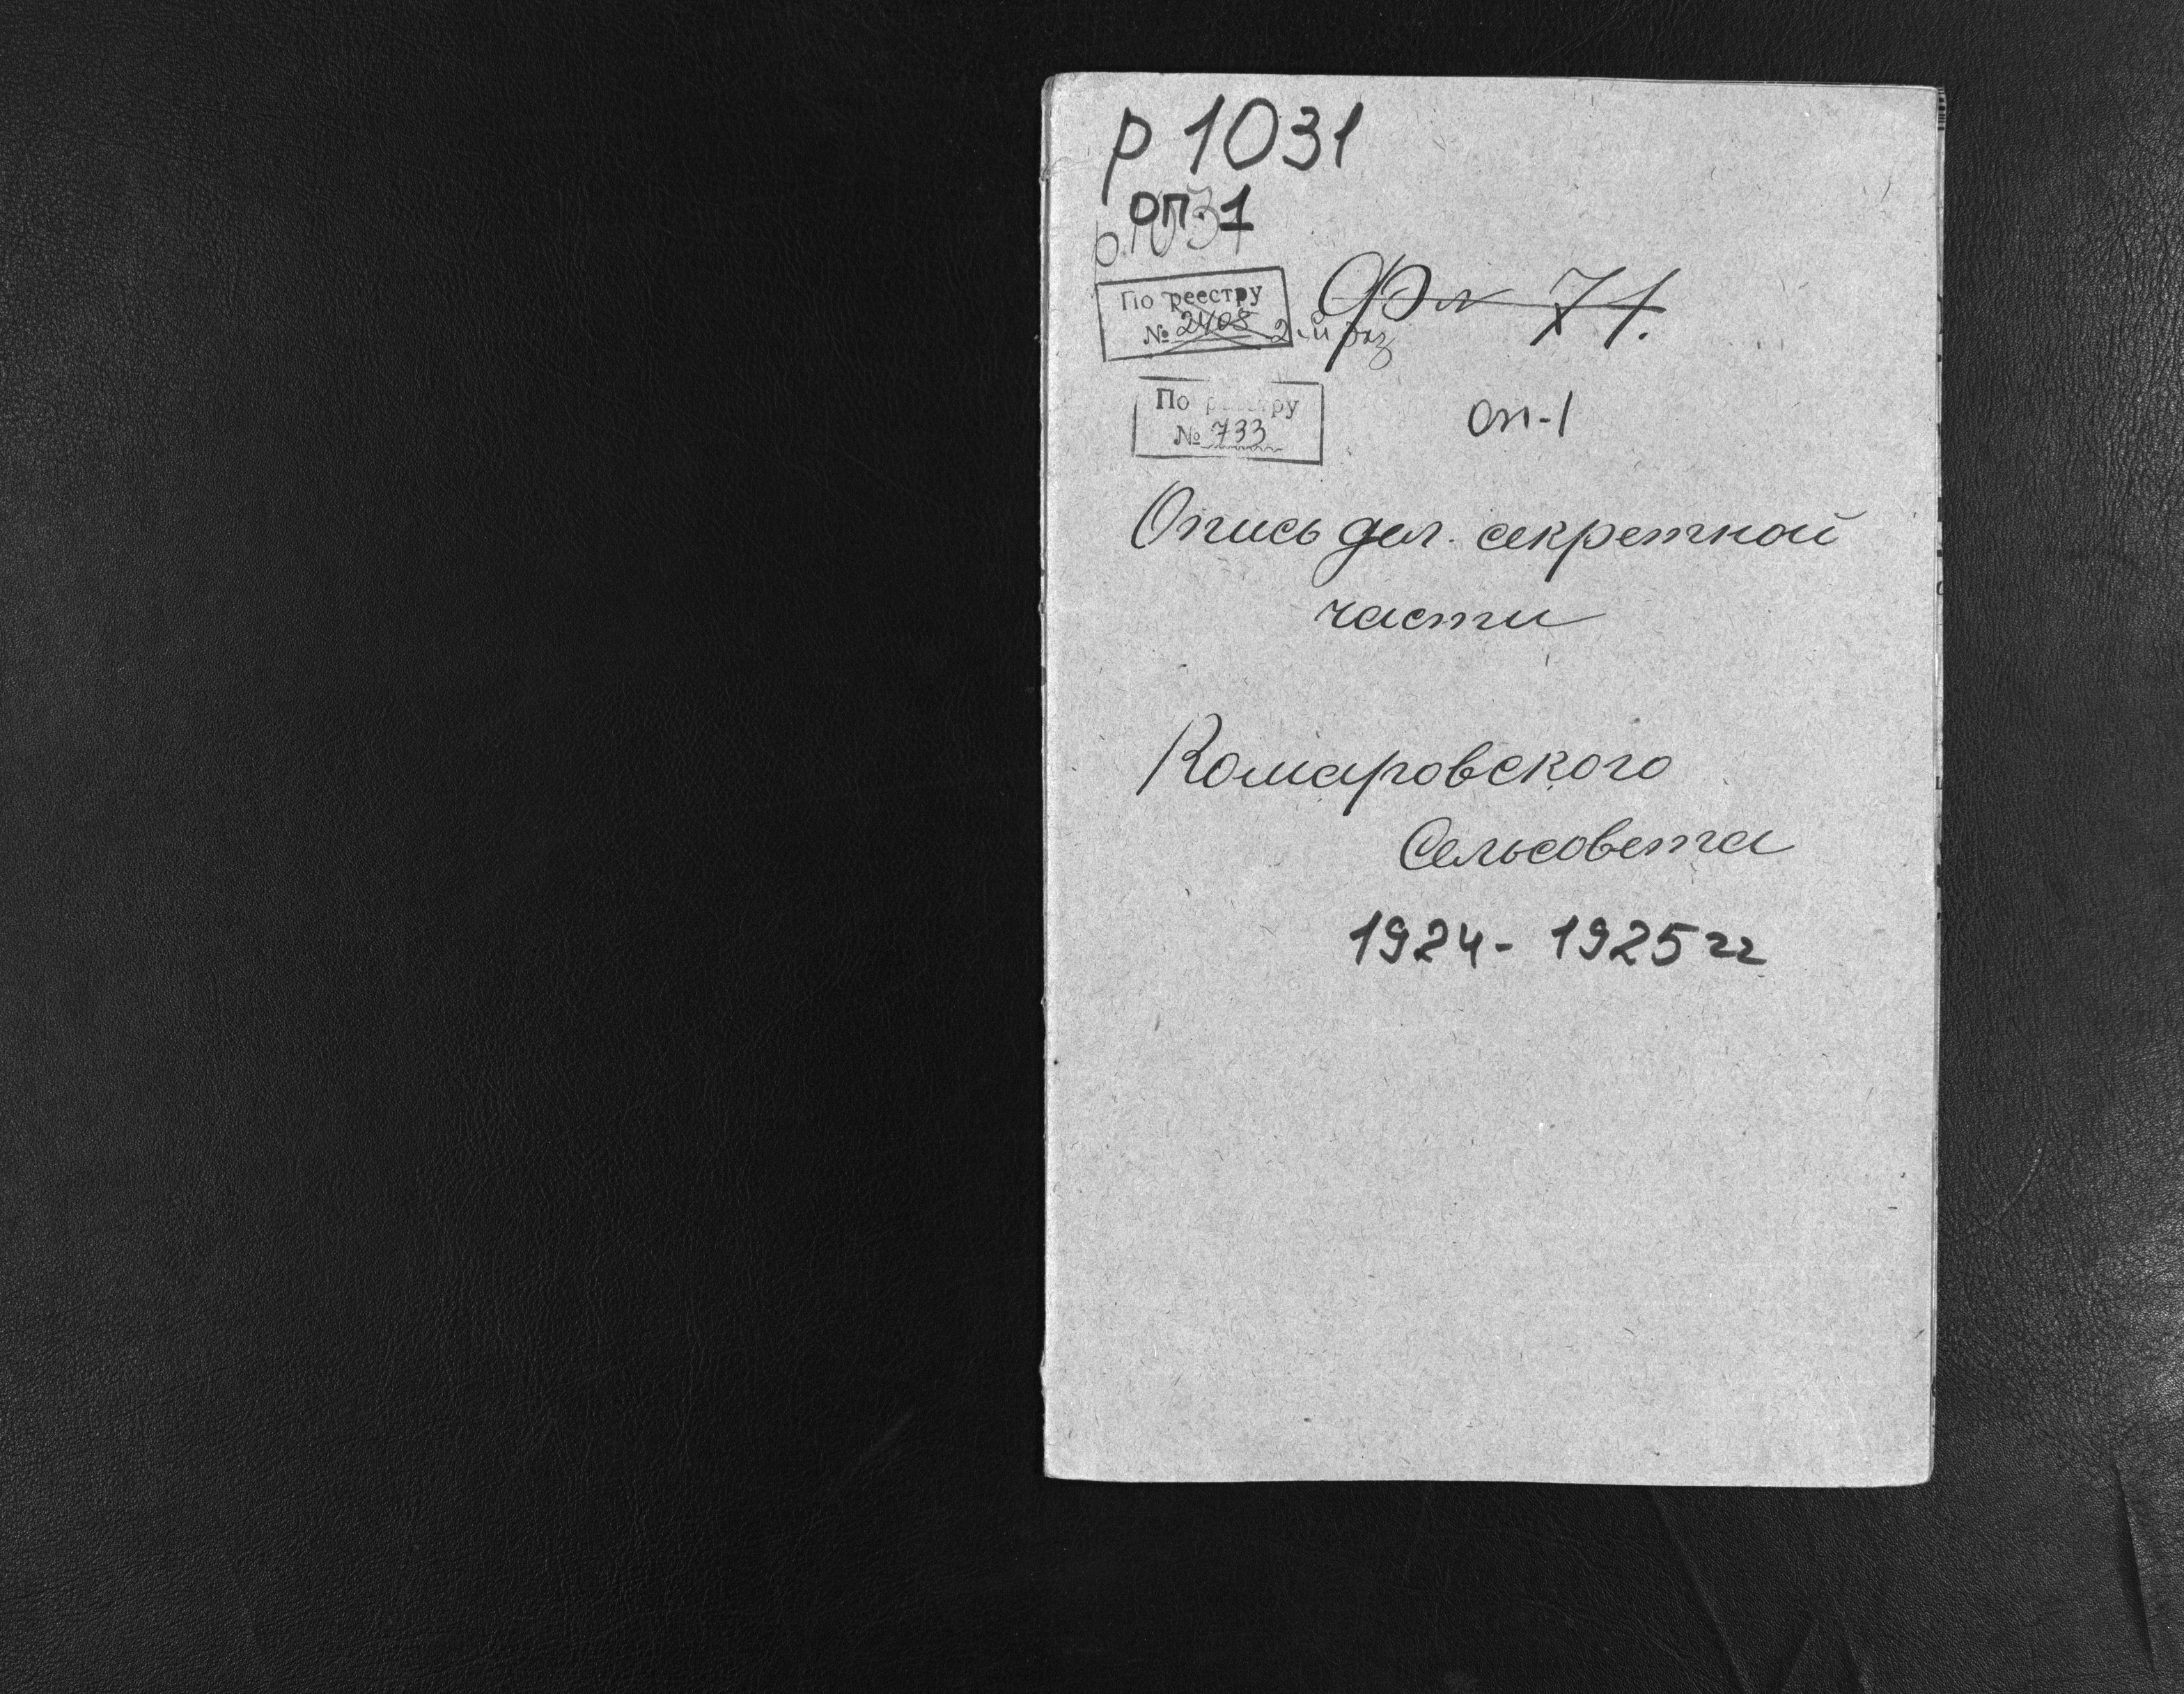 р 1031
оп. 1
р. 1031
По реестру
№ 2408 2-й экз
Ф № 71.
По реестру
№ 733
оп-1
Опись дел. секретной
части
Комаровского
Сельсовета
1924- 1925 гг